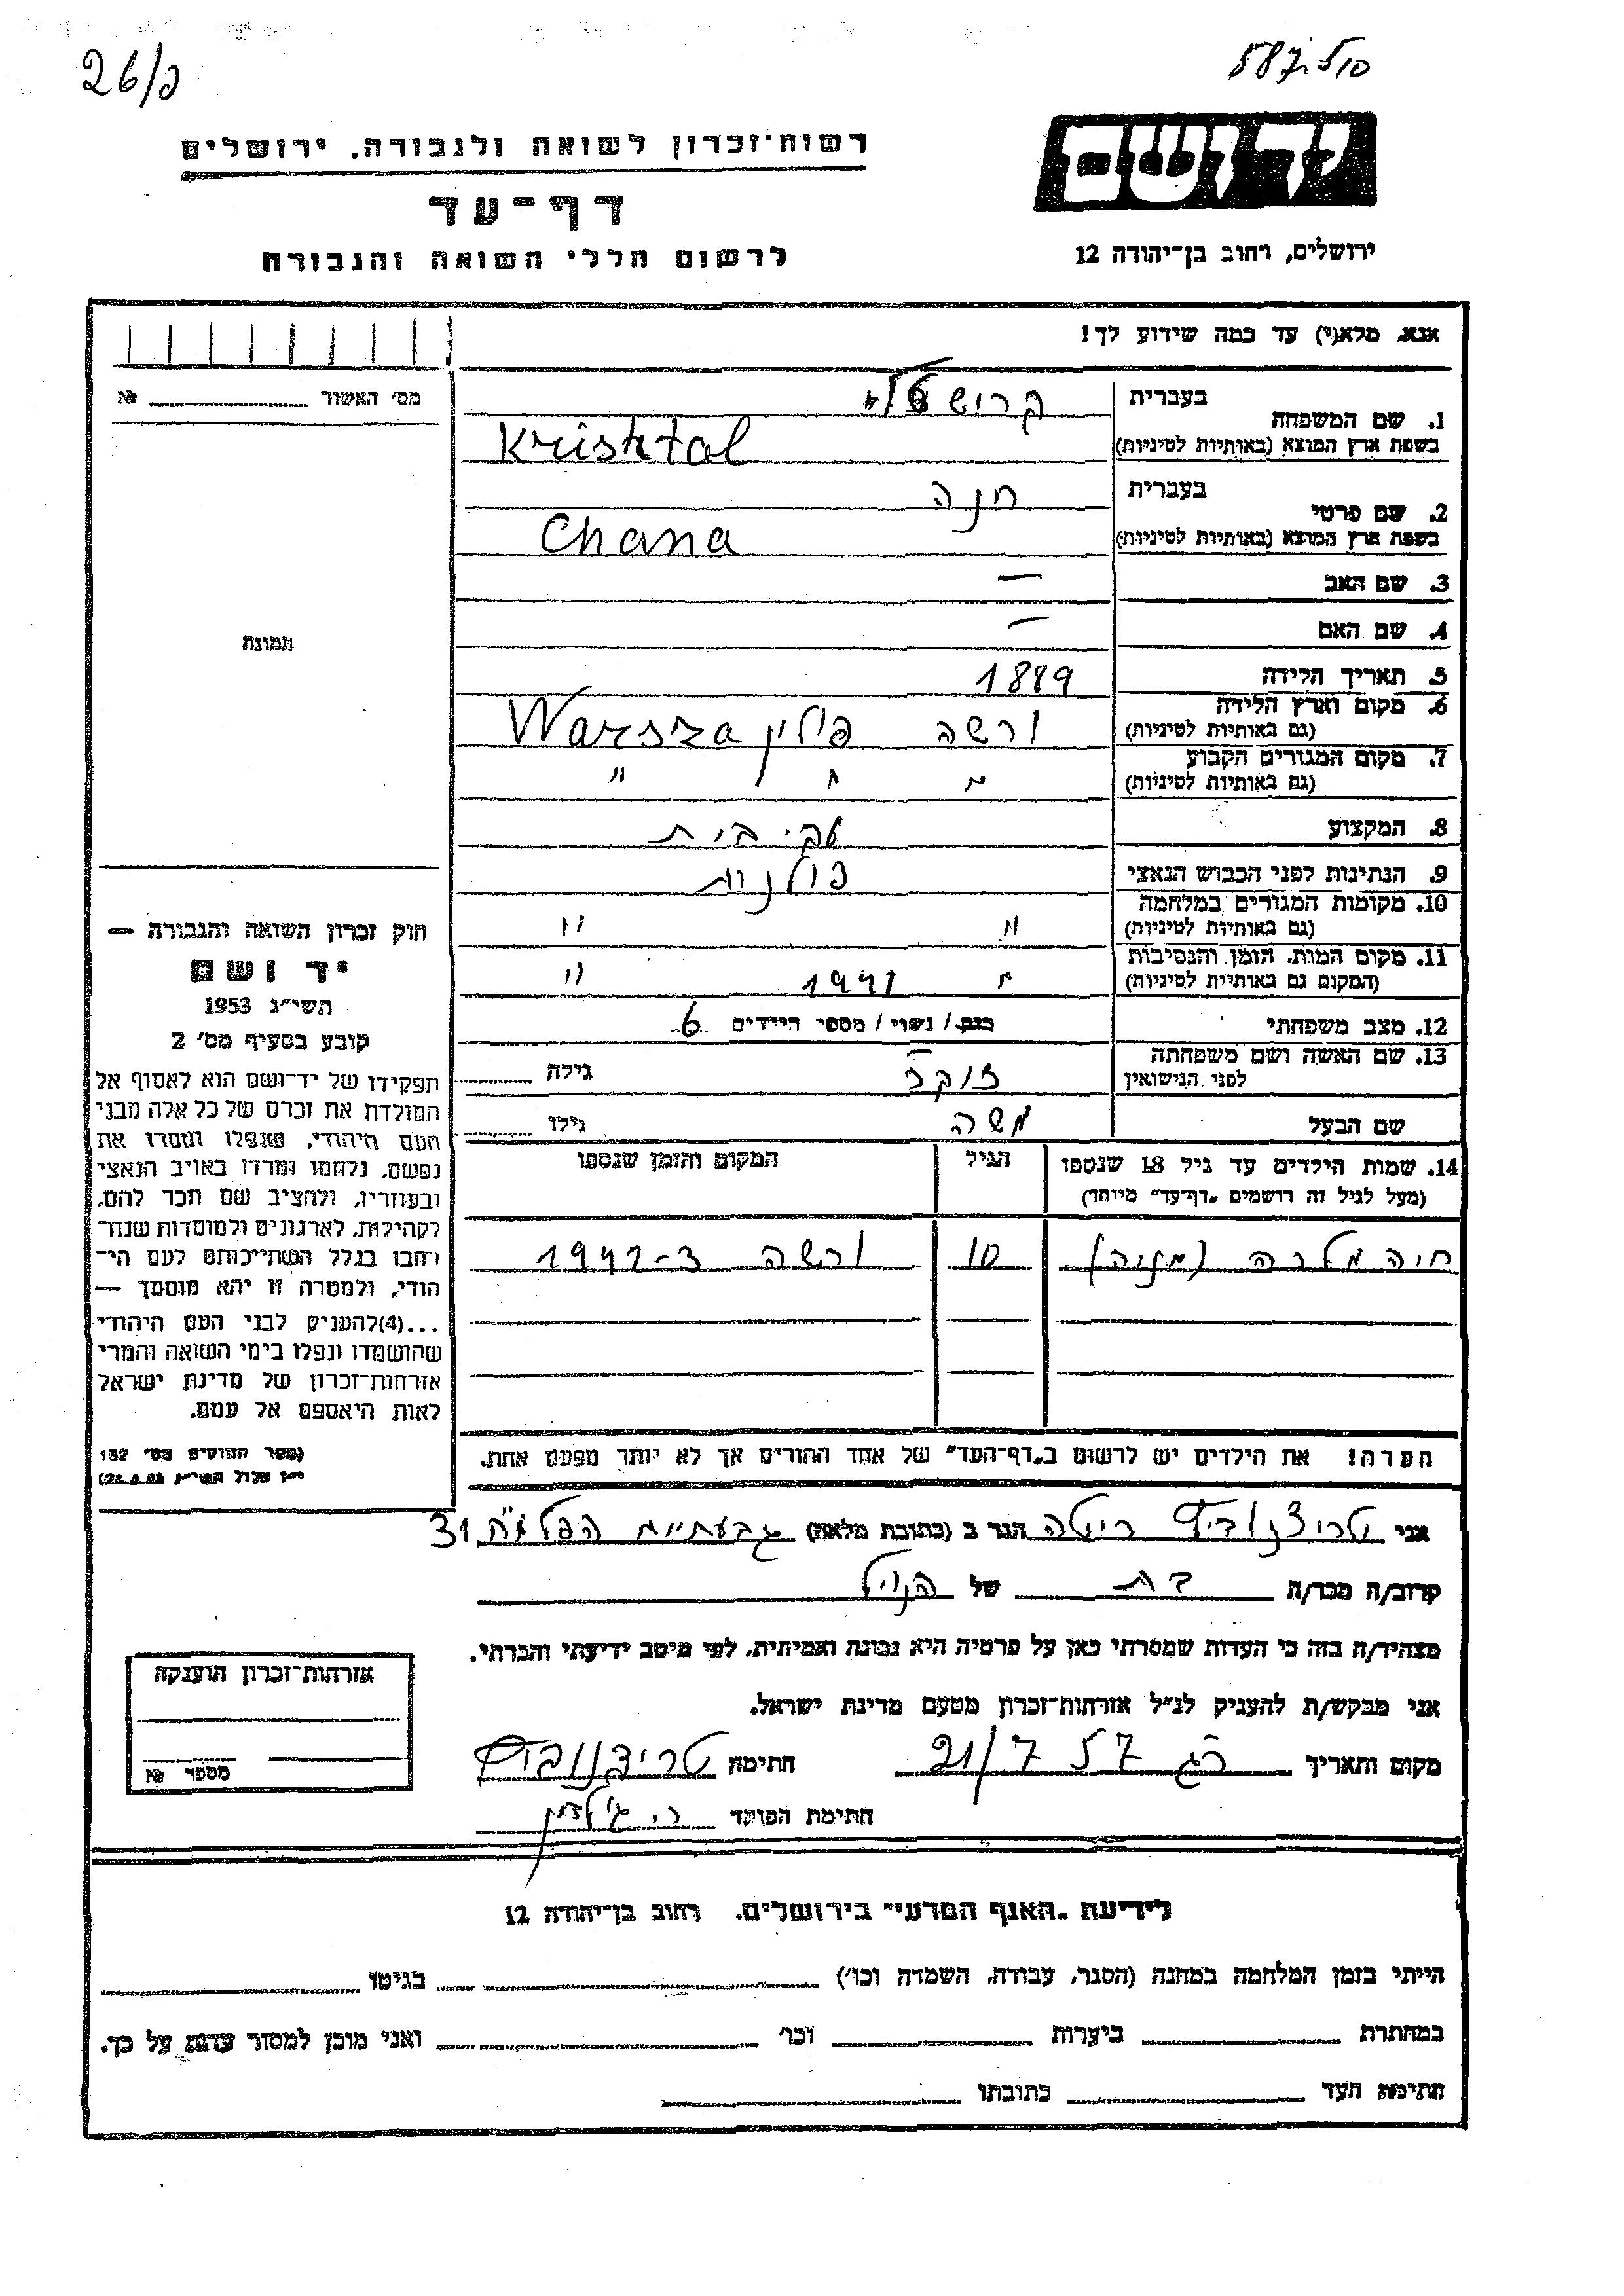 26/כ
רשות־זכרון לשואה ולגבורה, ירושלים
דף־עד
לרשום חללי השואה והגבורה
יד ושם
ירושלים, רחוב בן־יהודה 12
אנא, מלא(י) עד כמה שידוע לך!
מס׳ האשור № 
1. שם המשפחה
בעברית
בשפת ארץ המוצא (באותיות לטיניות)
Krishtal
2. שם פרטי
בעברית חנה
בשפת ארץ המוצא (באותיות לטיניות) Chana
3. שם האב —
4. שם האם —
5. תאריך הלידה 1889
6. מקום וארץ הלידה
(גם באותיות לטיניות) ורשה פולין Warsza
7. מקום המגורים הקבוע
(גם באותיות לטיניות) " " "
8. המקצוע עק׳ בית
9. הנתינות לפני הכבוש הנאצי פולנית
10. מקומות המגורים במלחמה
(גם באותיות לטיניות) " "
11. מקום המות, הזמן והנסיבות
(המקום גם באותיות לטיניות) " 1942 "
12. מצב משפחתי רווק / נשוי / מספר הילדים 6
13. שם האשה ושם משפחתה
לפני הנישואין צוקר גילה
שם הבעל משה גילו
14. שמות הילדים עד גיל 18 שנספו
(מעל לגיל זה רושמים "דף־עד" מיוחד)
הגיל
המקום והזמן שנספו
חיה מלכה (מניה) 10 ורשה 1942-3
הערה! את הילדים יש לרשום ב"דף־העד" של אחד ההורים אך לא יותר מפעם אחת.
תמונה
חוק זכרון השואה והגבורה —
יד ושם
תשי״ג 1953
קובע בסעיף מס׳ 2
תפקידו של יד־ושם הוא לאסוף אל
המולדת את זכרם של כל אלה מבני
העם היהודי, שנפלו ומסרו את
נפשם, נלחמו ומרדו באויב הנאצי
ובעוזריו, ולהציב שם וזכר להם,
לקהילות, לארגונים ולמוסדות שנח־
רבו בגלל השתייכותם לעם הי־
הודי, ולמטרה זו יהא מוסמך —
...(4)להעניק לבני העם היהודי
שהושמדו ונפלו בימי השואה והמרי
אזרחות־זכרון של מדינת ישראל
לאות היאספם אל עמם.
(ספר החוקים מס׳ 132
אני הגר ב (כתובת מלאה) גבעתיים הפלמ״ח 31
קרוב/ה מכר/ה בת של הנ״ל
מצהיר/ה בזה כי העדות שמסרתי כאן על פרטיה היא נכונה ואמיתית, לפי מיטב ידיעתי והכרתי.
אני מבקש/ת להעניק לנ״ל אזרחות־זכרון מטעם מדינת ישראל.
מקום ותאריך רג 21/7 57 חתימה
חתימת הפוקד
אזרחות־זכרון הוענקה
מספר №
לידיעת "האגף המדעי" בירושלים, רחוב בן־יהודה 12
הייתי בזמן המלחמה במחנה (הסגר, עבודה, השמדה וכו׳) בגיטו
במחתרת ביערות וכו׳ ואני מוכן למסור עדות על כך.
חתימת העד כתובתו